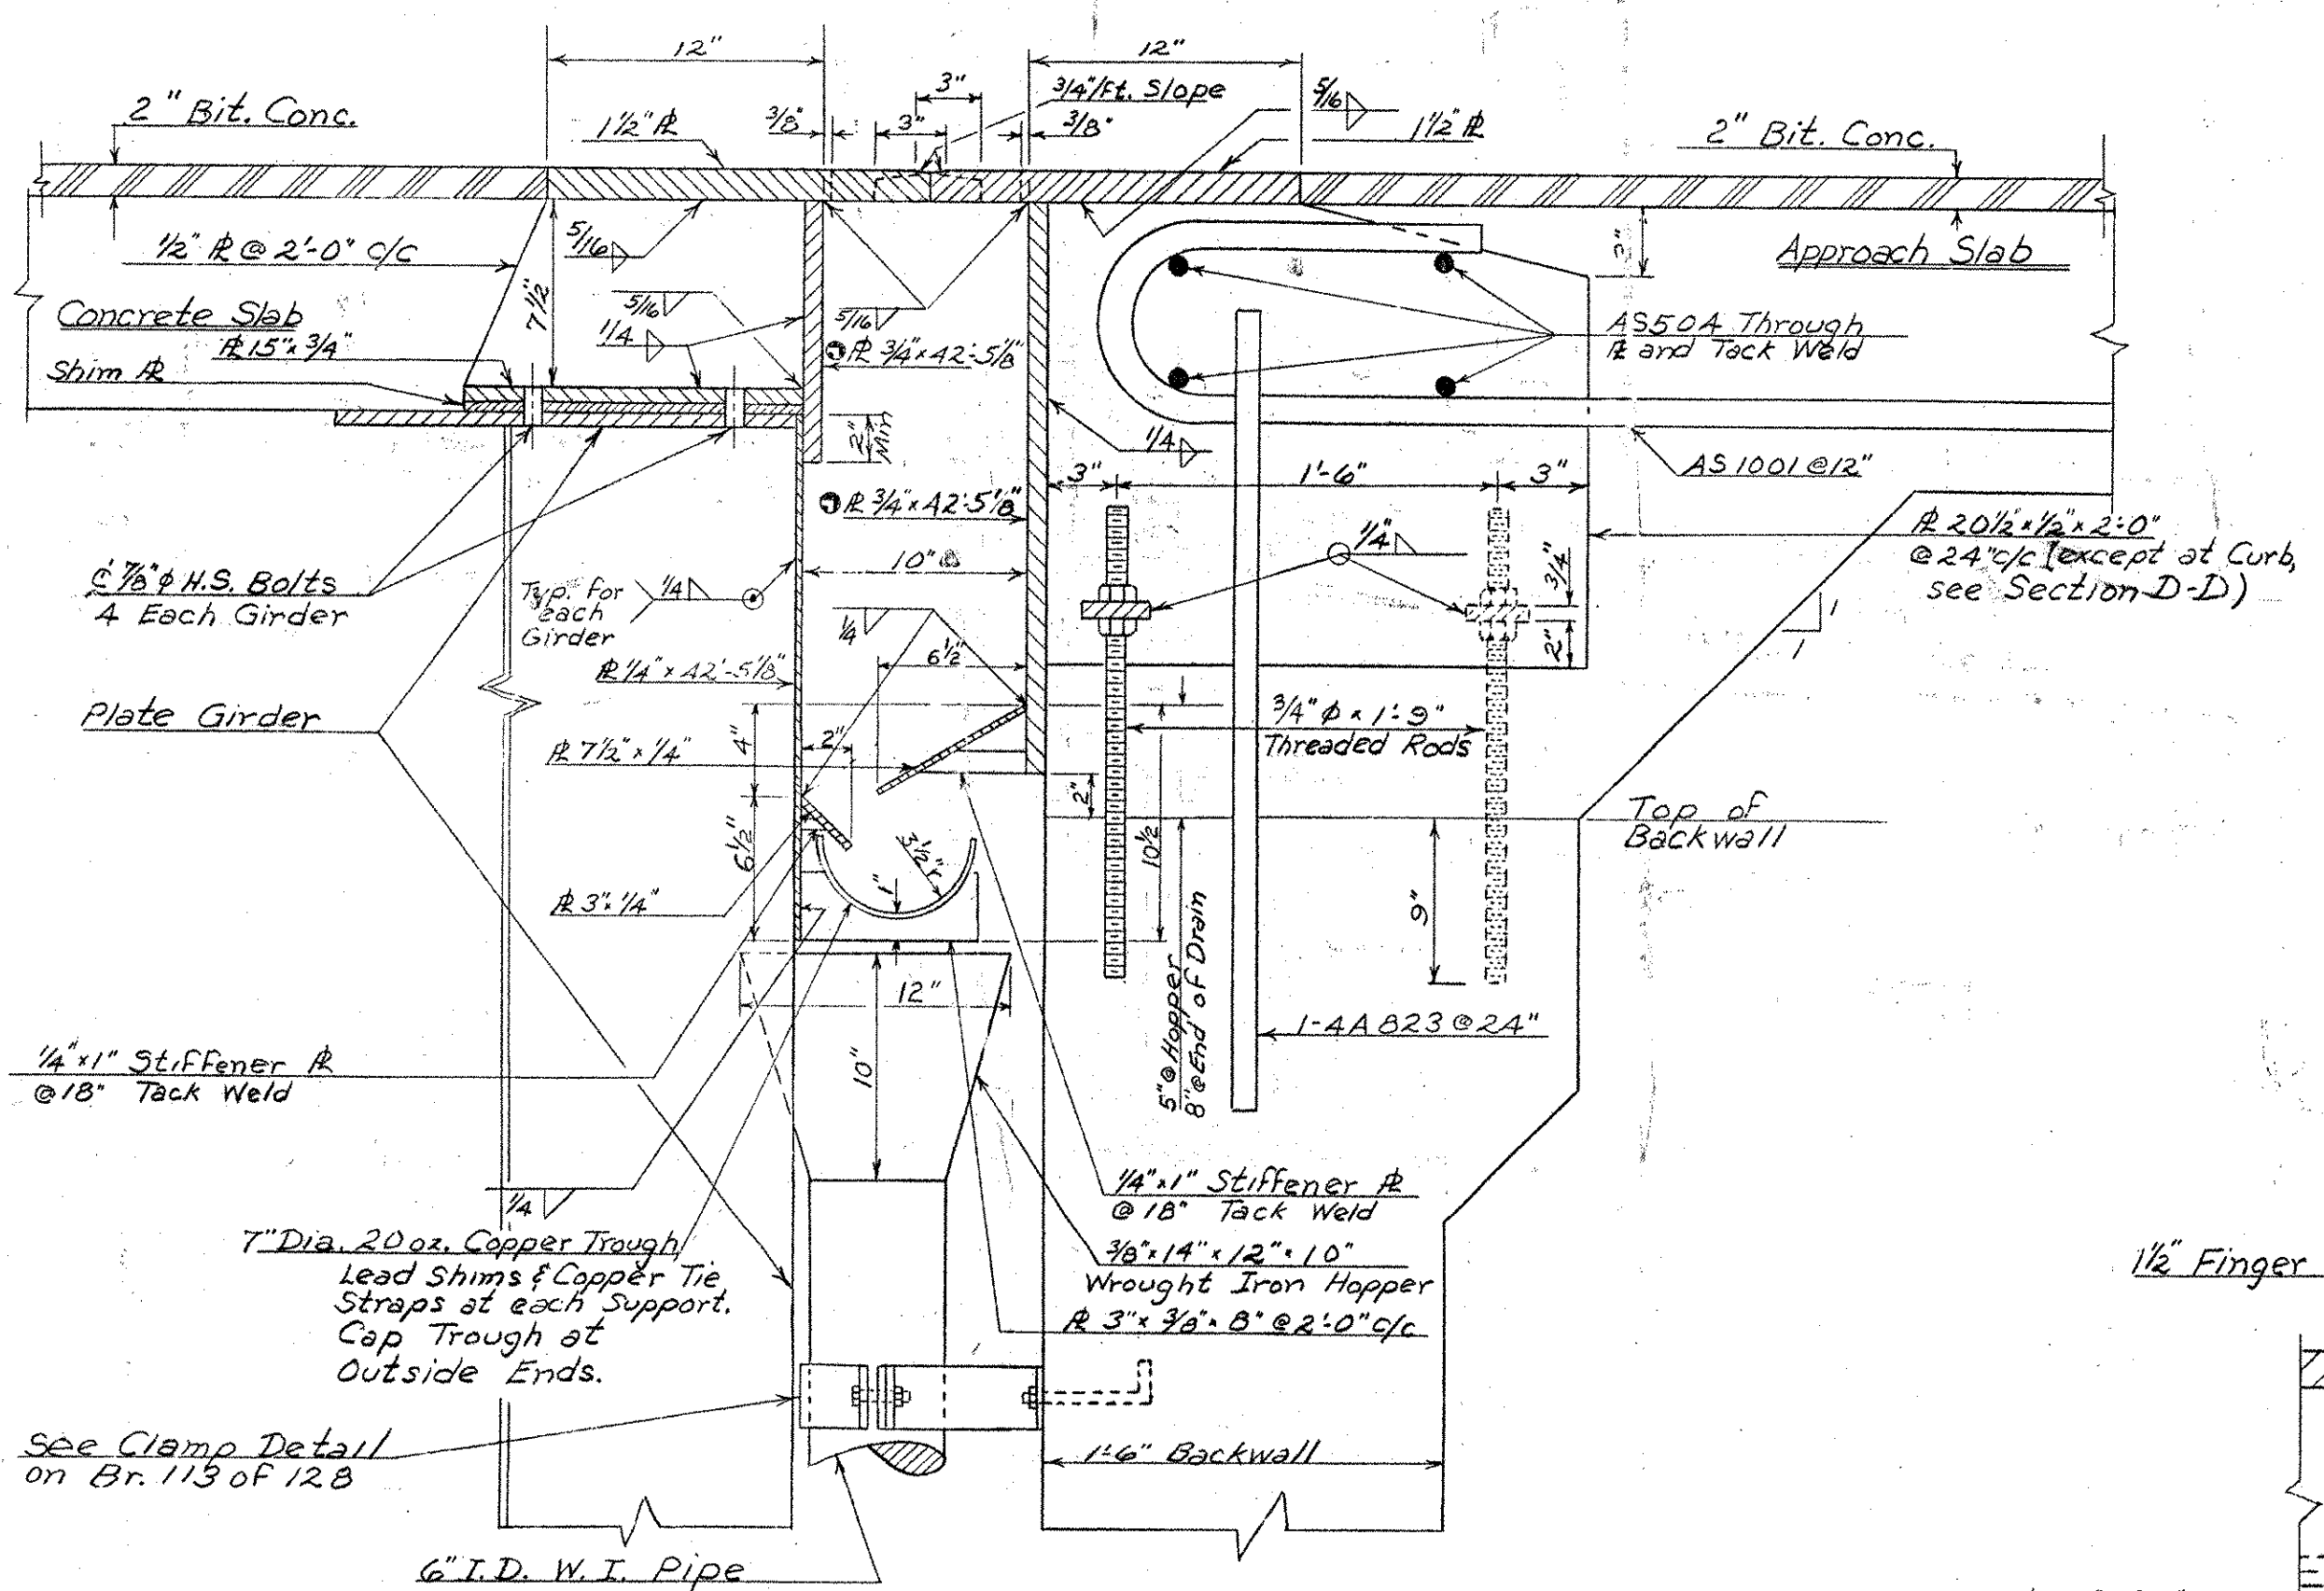 12"
12"
3"
3/4"/Ft. Slope
5/16
2" Bit. Conc.
1 1/2" ℄
3/8"
3"
3/8"
1 1/2" ℄
2" Bit. Conc.
1/2" ℄ @ 2'-0" c/c
5/16
7 1/2"
3"
Approach Slab
Concrete Slab
5/16
1/4
5/16
℄ 15" x 3/4"
℄ 3/4" x 42'-5 1/8"
AS504 Through
℄ and Tack Weld
Shim ℄
2" Min
1/4
AS 1001 @ 12"
3"
1'-6"
3"
℄ 3/4" x 42'-5 1/8"
℄ 20 1/2" x 1/2" x 2'-0"
@ 24" c/c (except at Curb,
see Section D-D)
10"
1/4"
3/4"
2"
1
1
℄ 7/8" φ H.S. Bolts
4 Each Girder
Typ. for
each
Girder
1/4
1/4
6 1/2"
℄ 1/4" x 42'-5 1/8"
Plate Girder
3/4" φ x 1'-9"
Threaded Rods
4"
2"
℄ 7 1/2" x 1/4"
2"
10 1/2
Top of
Backwall
6 1/2"
3 1/2" r
1"
℄ 3" x 1/4"
9"
5" @ Hopper
8" @ End of Drain
12"
10"
1-4A823 @ 24"
1/4" x 1" Stiffener ℄
@ 18" Tack Weld
1/4
1/4" x 1" Stiffener ℄
@ 18" Tack Weld
7" Dia. 20 oz. Copper Trough
Lead Shims & Copper Tie
Straps at each Support.
Cap Trough at
Outside Ends.
3/8" x 14" x 12" x 10"
Wrought Iron Hopper
℄ 3" x 3/8" x 8" @ 2'-0" c/c
1 1/2" Finger
See Clamp Detail
on Br. 113 of 128
1'-6" Backwall
6" I.D. W.I. Pipe